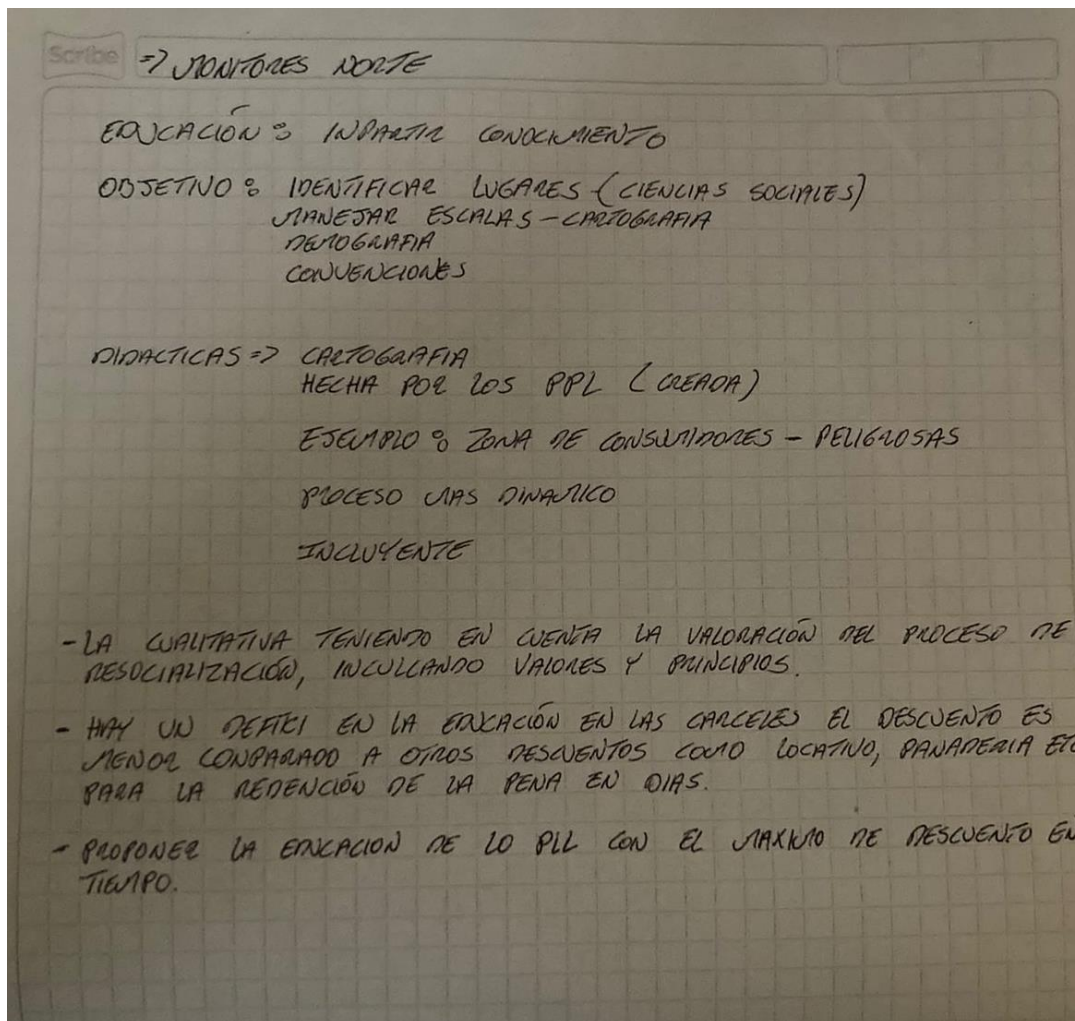 Scribe
=> MONITORES NORTE
EDUCACIÓN : INPARTIR CONOCIMIENTO
OBJETIVO : IDENTIFICAR LUGARES (CIENCIAS SOCIALES)
MANEJAR ESCALAS - CARTOGRAFIA
DEMOGRAFIA
CONVENCIONES
DIDACTICAS => CARTOGRAFIA
HECHA POR LOS PPL (CREADA)
EJEMPLO : ZONA DE CONSUMIDORES - PELIGROSAS
PROCESO MAS DINAMICO
INCLUYENTE
- LA CUALITATIVA TENIENDO EN CUENTA LA VALORACIÓN DEL PROCESO DE
RESOCIALIZACIÓN, INCULCANDO VALORES Y PRINCIPIOS.
- HAY UN DEFICI EN LA EDUCACIÓN EN LAS CARCELES EL DESCUENTO ES
MENOR CONPARADO A OTROS DESCUENTOS COMO LOCATIVO, PANADERIA ETC
PARA LA REDENCIÓN DE LA PENA EN DIAS.
- PROPONER LA EDUCACION DE LO PLL CON EL MAXIMO DE DESCUENTO EN
TIEMPO.